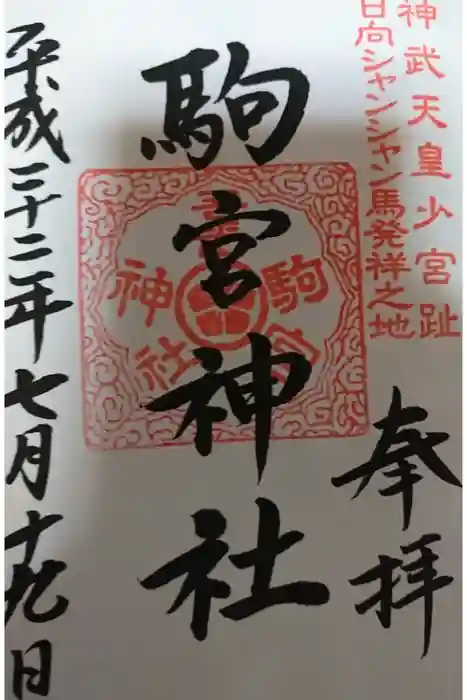 神武天皇少宮趾
日向シャンシャン馬発祥之地
奉拝
駒宮神社
駒宮
神社
平成三十二年七月十九日